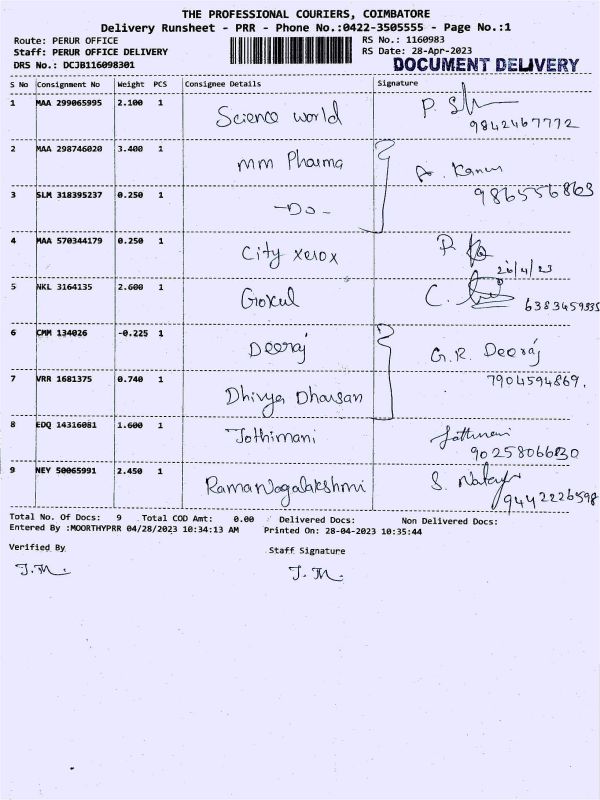 THE PROFESSIONAL COURIERS, COIMBATORE
Delivery Runsheet - PRR - Phone No.:0422-3505555 - Page No.:1
Route: PERUR OFFICE RS No.: 1160983
Staff: PERUR OFFICE DELIVERY RS Date: 28-Apr-2023
DRS No.: DCJB116098301 DOCUMENT DELIVERY
S No Consignment No Weight PCS Consignee Details Signature
1 MAA 299065995 2.100 1 Science world P.
9842467772
2 MAA 298746020 3.400 1 mm Pharma A.
3 SLM 318395237 0.250 1 -Do- 986556863
4 MAA 570344179 0.250 1 City xerox
26/4/23
5 NKL 3164135 2.600 1 Gokul C.
6383459335
6 CMM 134026 -0.225 1 Deeraj G.R. Deeraj
7 VRR 1681375 0.740 1 Dhivya Dharsan 7904594869.
8 EDQ 14316081 1.600 1 Jothimani Jothimani
9025806630
9 NEY 50065991 2.450 1 Rama Nagalakshmi S.
9442226598
Total No. Of Docs: 9 Total COD Amt: 0.00 Delivered Docs: Non Delivered Docs:
Entered By :MOORTHYPRR 04/28/2023 10:34:13 AM Printed On: 28-04-2023 10:35:44
Verified By Staff Signature
J.M. J.M.